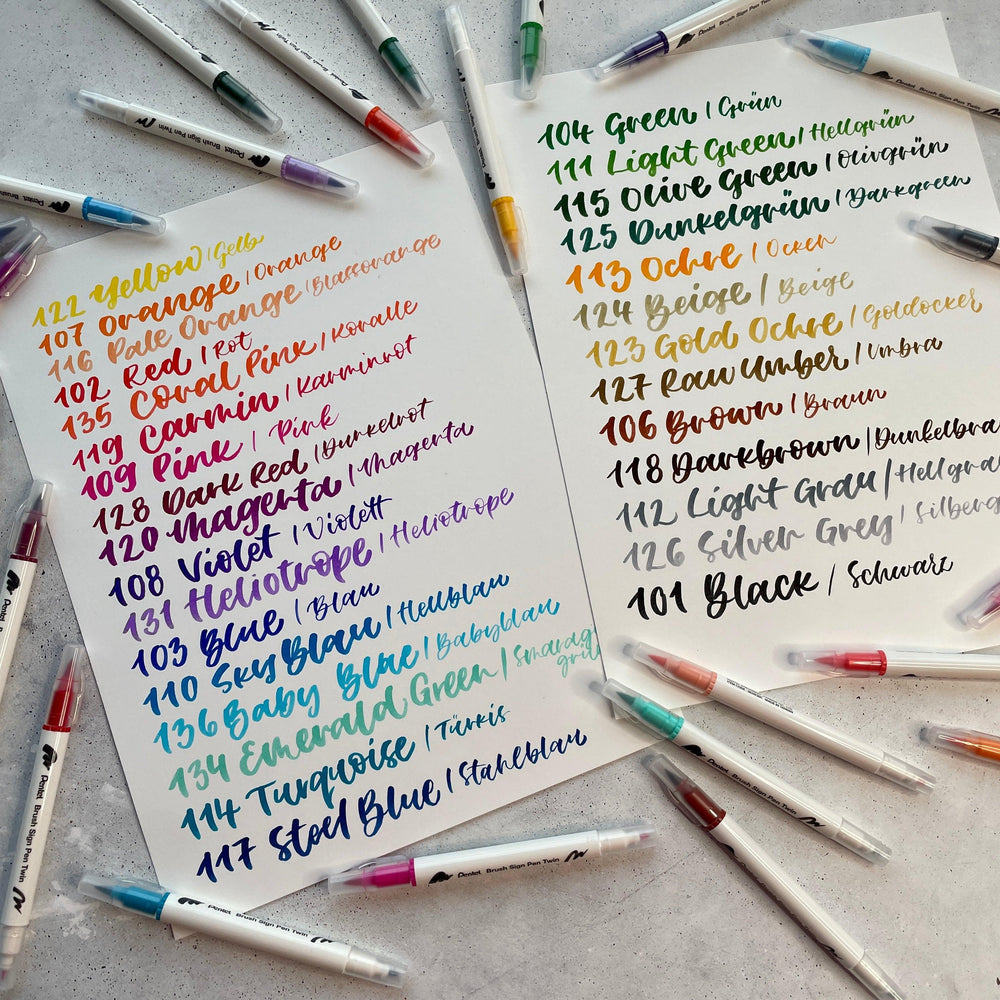 122 Yellow | Gelb
107 Orange | Orange
116 Pale Orange | Blassorange
102 Red | Rot
135 Coral Pink | Koralle
119 Carmin | Karminrot
109 Pink | Pink
128 Dark Red | Dunkelrot
120 Magenta | Magenta
108 Violet | Violett
131 Heliotrope | Heliotrope
103 Blue | Blau
110 Sky Blau | Hellblau
136 Baby Blue | Babyblau
134 Emerald Green | Smaragdgrün
114 Turquoise | Türkis
117 Steel Blue | Stahlblau
104 Green | Grün
111 Light Green | Hellgrün
115 Olive Green | Olivgrün
125 Dunkelgrün | Darkgreen
113 Ochre | Ocker
124 Beige | Beige
123 Gold Ochre | Goldocker
127 Raw Umber | Umbra
106 Brown | Braun
118 Darkbrown | Dunkelbra
112 Light Gray | Hellgra
126 Silver Grey | Silberg
101 Black / Schwarz
Pentel Brush Sign Pen Twin
Pentel Brush Sign Pen Twin
Pentel Brush Sign Pen Twin
Pentel Brush Sign Pen Twin